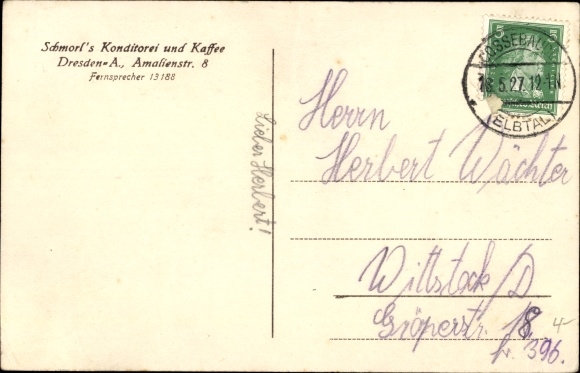 Schmorl's Konditorei und Kaffee
Dresden=A., Amalienstr. 8
Fernsprecher 13188
5 5
COSSEBAUDE
5.27.12
(ELBTAL)
Lieber Herbert!
Herrn
Herbert Wächter
Wittstock/D
Gröperstr. 18
4-
396.